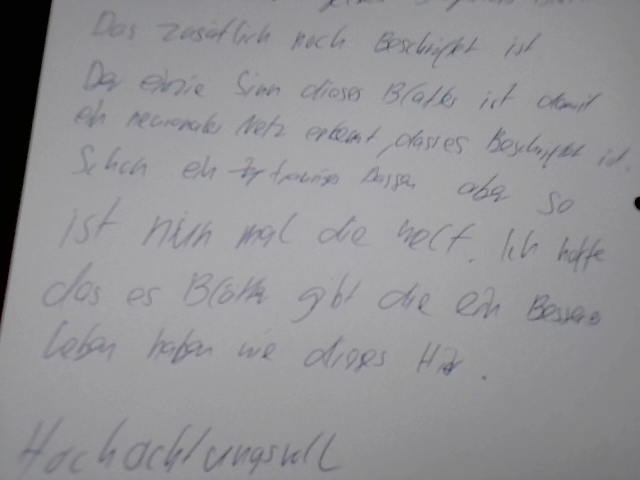 Das zusätlich noch Beschriftet ist
Der einzie Sinn dieses Blattes ist damit
ein neuronales Netz erkennt, dass es Beschriftet ist.
Schon ein trauriges Dassen aber so
ist nun mal die welt. Ich hoffe
das es Blätter gibt die ein Besseres
leben haben wie dieses Hir.
Hochachtungsvoll